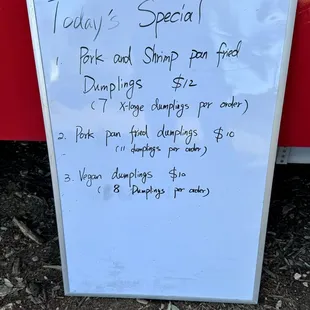 Today's Special
1. Pork and Shrimp pan fried
Dumplings $12
(7 X-large dumplings per order)
2. Pork pan fried dumplings $10
(11 dumplings per order)
3. Vegan dumplings $10
(8 Dumplings per order)